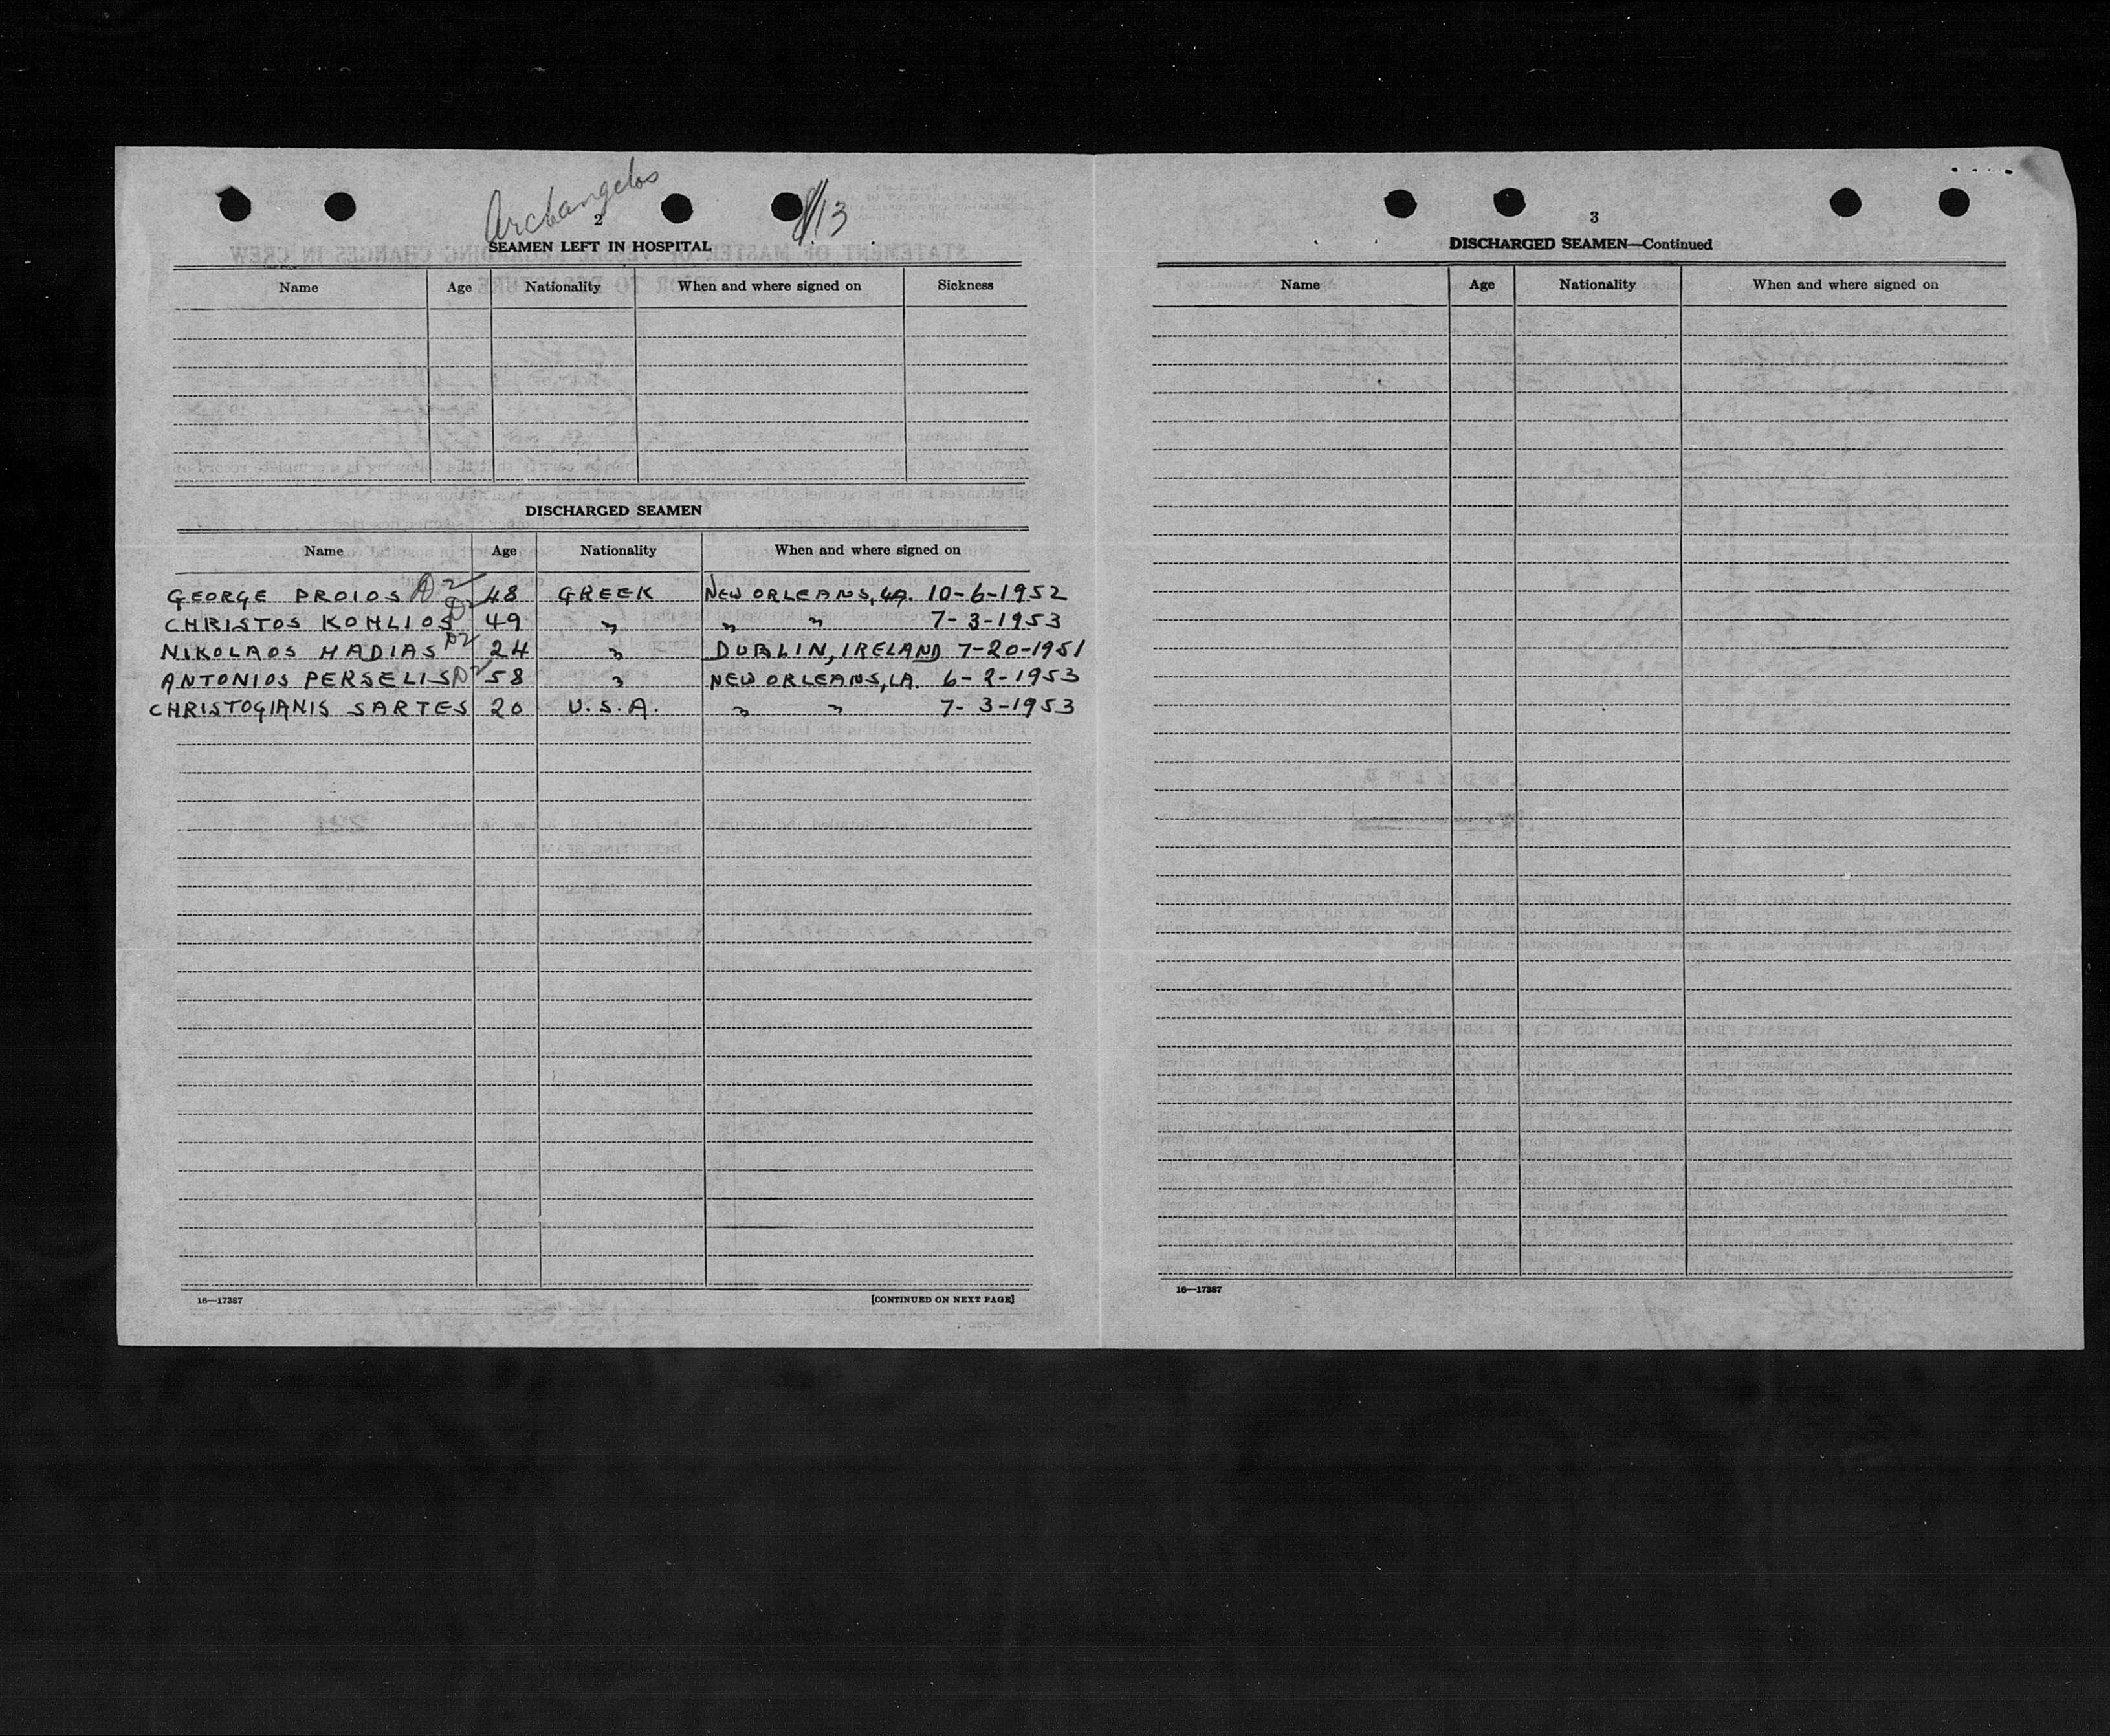 Archangelos
2
8/13
SEAMEN LEFT IN HOSPITAL
Name Age Nationality When and where signed on Sickness
DISCHARGED SEAMEN
Name Age Nationality When and where signed on
GEORGE PROIOS D2 48 GREEK NEW ORLEANS, LA. 10-6-1952
CHRISTOS KOHLIOS D2 49 " " " 7-3-1953
NIKOLAOS MADIAS D2 24 " DUBLIN, IRELAND 7-20-1951
ANTONIOS PERSELIS D2 58 " NEW ORLEANS, LA. 6-2-1953
CHRISTOGIANIS SARTES 20 U.S.A. " " 7-3-1953
16—17387 [CONTINUED ON NEXT PAGE]
3
DISCHARGED SEAMEN—Continued
Name Age Nationality When and where signed on
16—17387